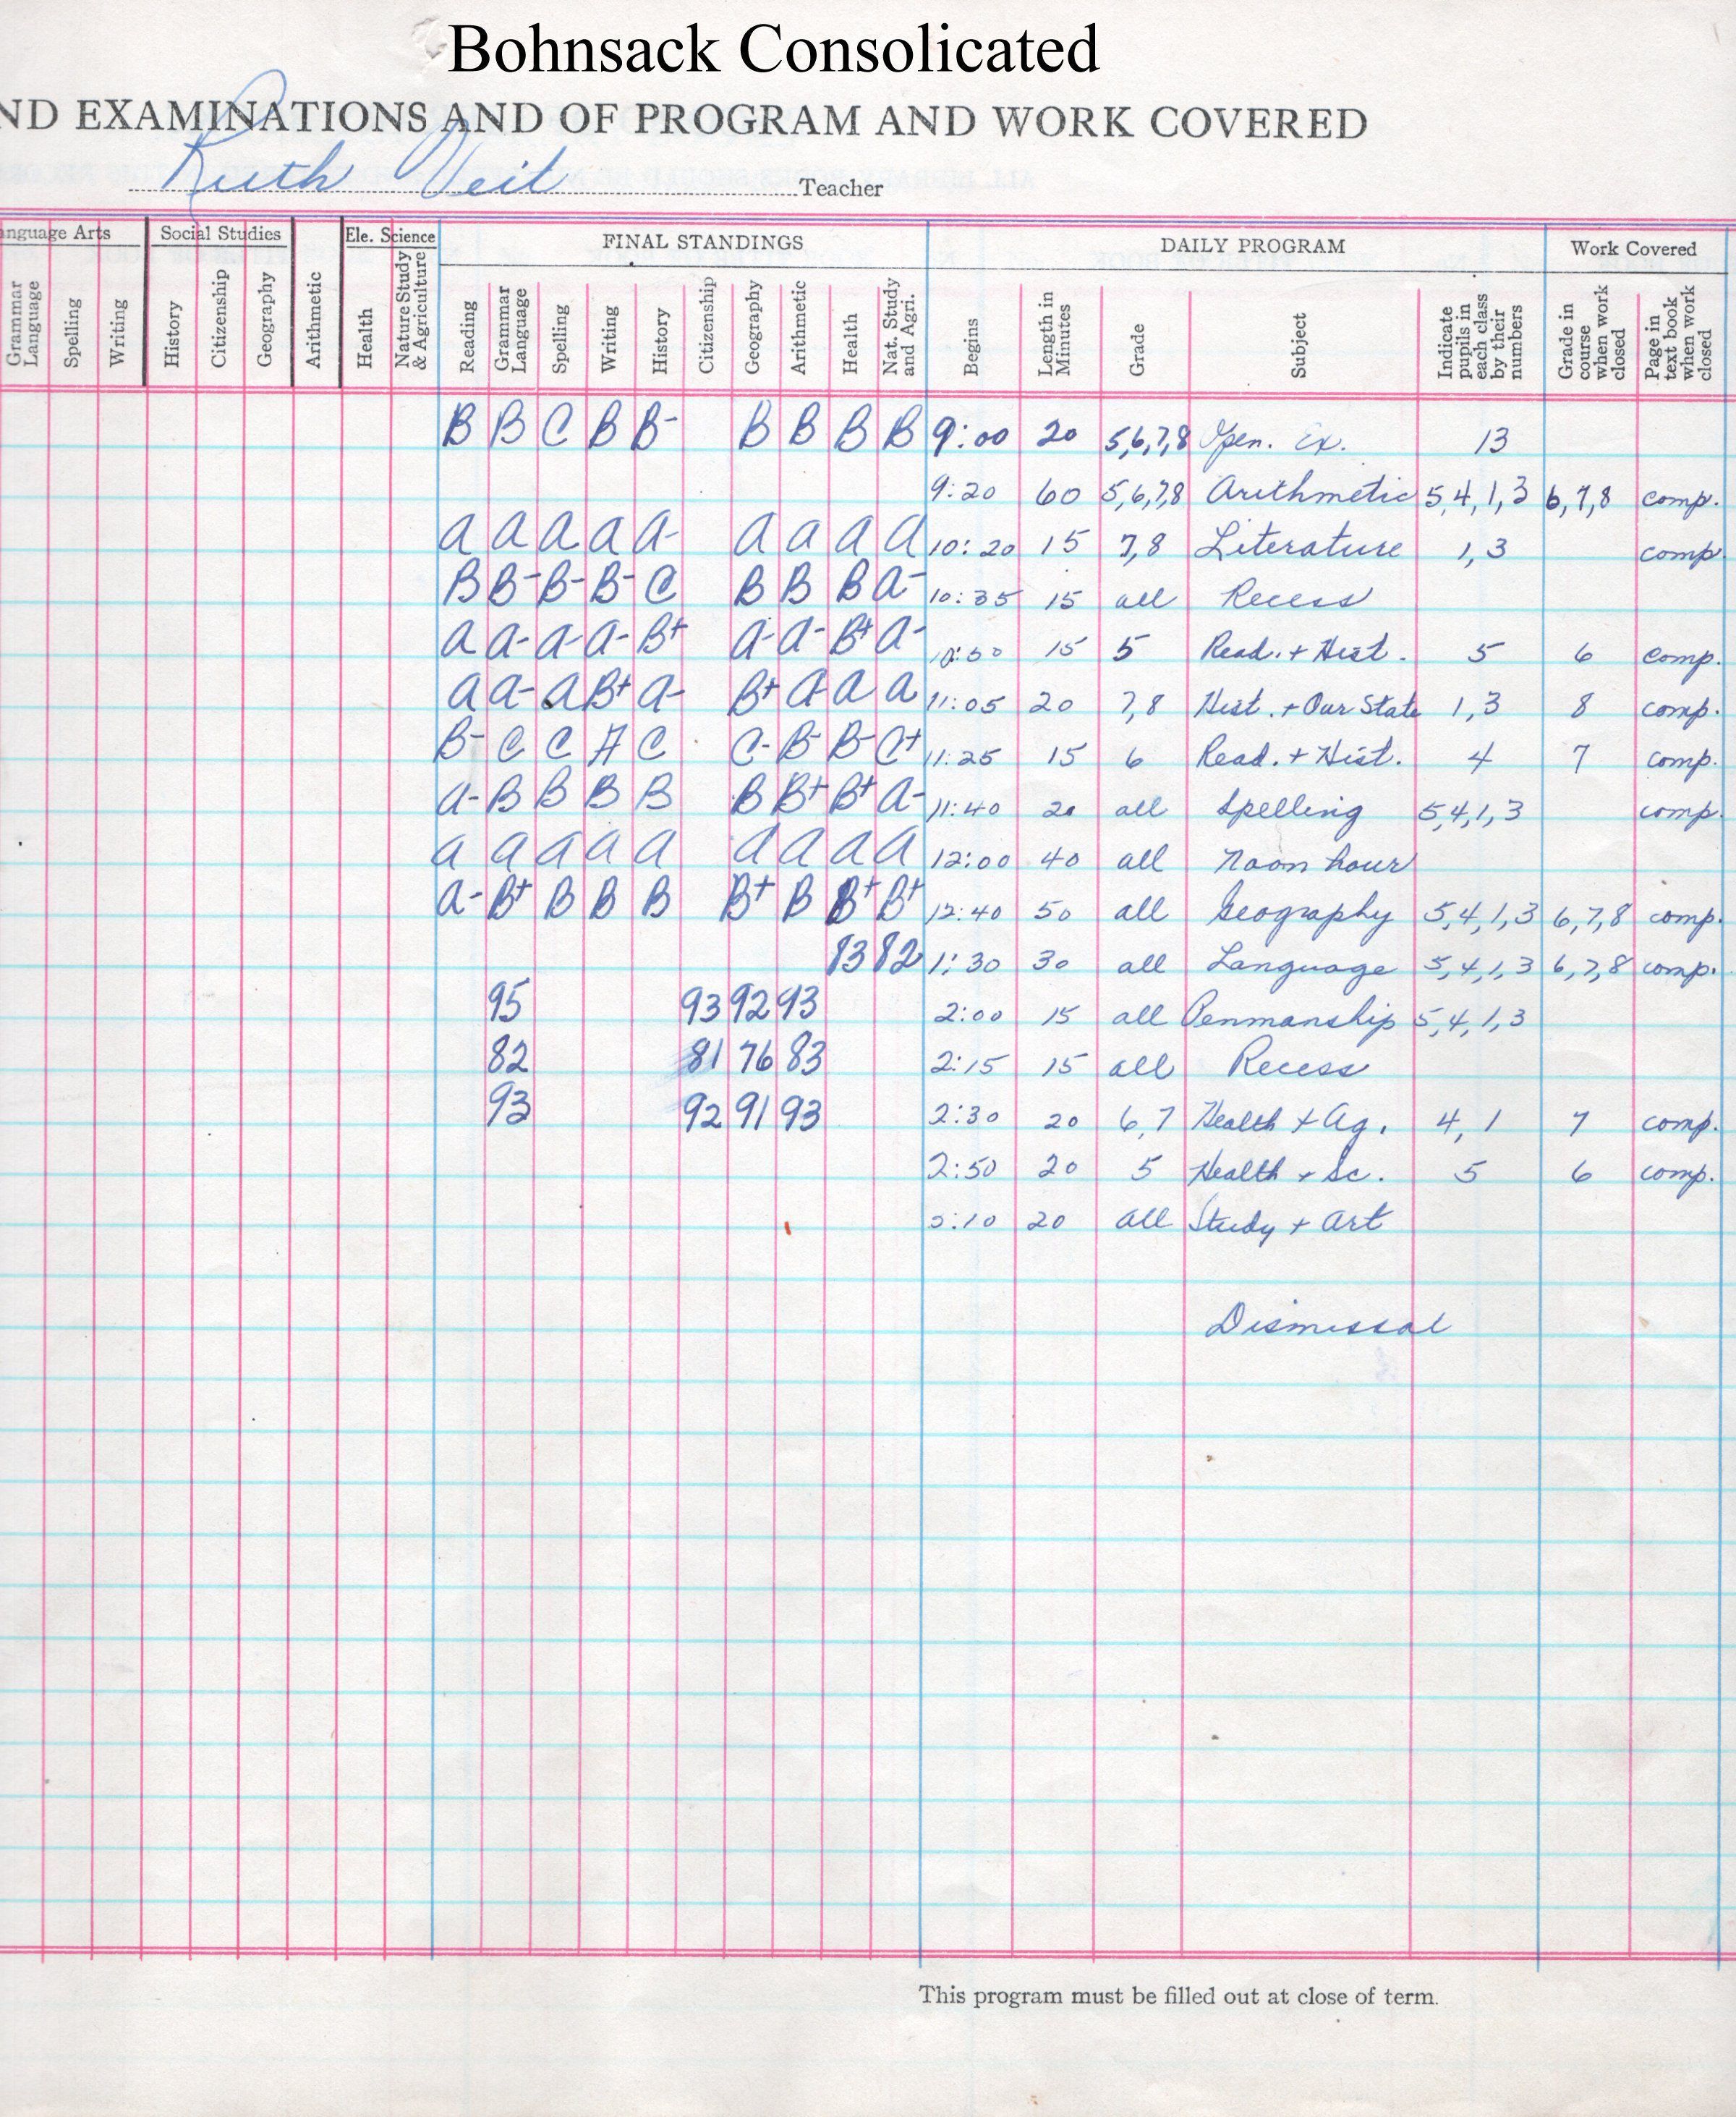 Bohnsack Consolicated
ND EXAMINATIONS AND OF PROGRAM AND WORK COVERED
Ruth Veit Teacher
nguage Arts Social Studies Ele. Science FINAL STANDINGS DAILY PROGRAM Work Covered
Grammar Language Spelling Writing History Citizenship Geography Arithmetic Health Nature Study & Agriculture Reading Grammar Language Spelling Writing History Citizenship Geography Arithmetic Health Nat. Study and Agri. Begins Length in Minutes Grade Subject Indicate pupils in each class by their numbers Grade in course when work closed Page in text book when work closed
B B C B B- B B B B 9:00 20 5,6,7,8 Open. Ex. 13
9:20 60 5,6,7,8 Arithmetic 5,4,1,3 6,7,8 comp.
a a a a a- a a a a 10:20 15 7,8 Literature 1,3 comp.
B B- B- B- C B B B a- 10:35 15 all Recess
a a- a- a- B+ a- a- B+ a- 10:50 15 5 Read. + Hist. 5 6 comp.
a a- a B+ a- B+ a a a 11:05 20 7,8 Hist. + Our State 1,3 8 comp.
B- C C A C C- B- B- C+ 11:25 15 6 Read. + Hist. 4 7 comp.
a- B B B B B B+ B+ a- 11:40 20 all Spelling 5,4,1,3 comp.
a a a a a a a a a 12:00 40 all Noon hour
a- B+ B B B B+ B B+ B+ 12:40 50 all Geography 5,4,1,3 6,7,8 comp.
83 82 1:30 30 all Language 5,4,1,3 6,7,8 comp.
95 93 92 93 2:00 15 all Penmanship 5,4,1,3
82 81 76 83 2:15 15 all Recess
93 92 91 93 2:30 20 6,7 Health + Ag. 4,1 7 comp.
2:50 20 5 Health + Sc. 5 6 comp.
3:10 20 all Study + Art
Dismissal
This program must be filled out at close of term.